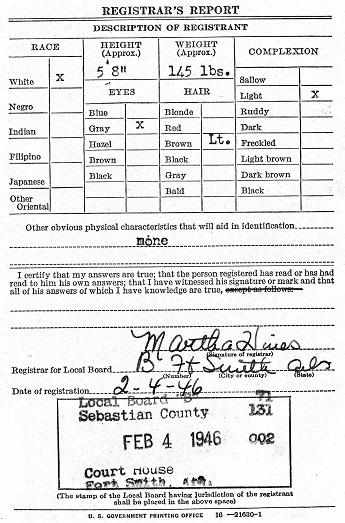 REGISTRAR'S REPORT
DESCRIPTION OF REGISTRANT
RACE
HEIGHT (Approx.)
WEIGHT (Approx.)
COMPLEXION
5'8"
145 lbs.
White X
EYES
HAIR
Sallow
Light X
Negro
Blue
Blonde
Ruddy
Gray X
Red
Dark
Indian
Hazel
Brown Lt.
Freckled
Filipino
Brown
Black
Light brown
Japanese
Black
Gray
Dark brown
Other Oriental
Bald
Black
Other obvious physical characteristics that will aid in identification
none
I certify that my answers are true; that the person registered has read or has had
read to him his own answers; that I have witnessed his signature or mark and that
all of his answers of which I have knowledge are true, except as follows:
Martha Hines
(Signature of registrar)
Registrar for Local Board B Ft Smith
(Number) (City or county) (State)
Date of registration 2-4-46
Local Board 71
Sebastian County 131
FEB 4 1946 002
Court House
Fort Smith, Ark.
(The stamp of the Local Board having jurisdiction of the registrant
shall be placed in the above space)
U. S. GOVERNMENT PRINTING OFFICE 16—21630-1